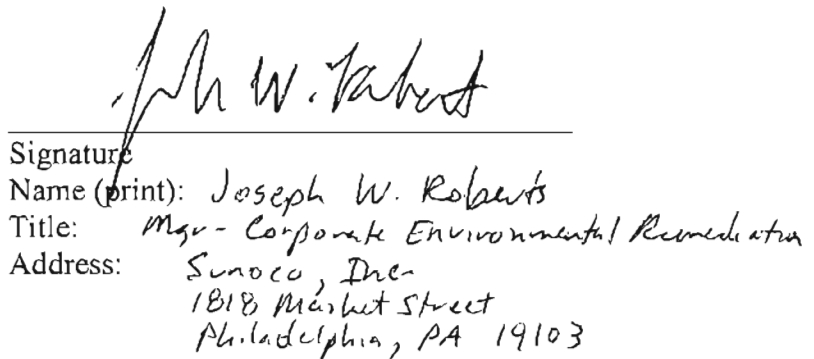 Joseph W. Roberts
Signature
Name (print): Joseph W. Roberts
Title: Mgr - Corporate Environmental Remediation
Address: Sunoco, Inc.
1818 Market Street
Philadelphia, PA 19103